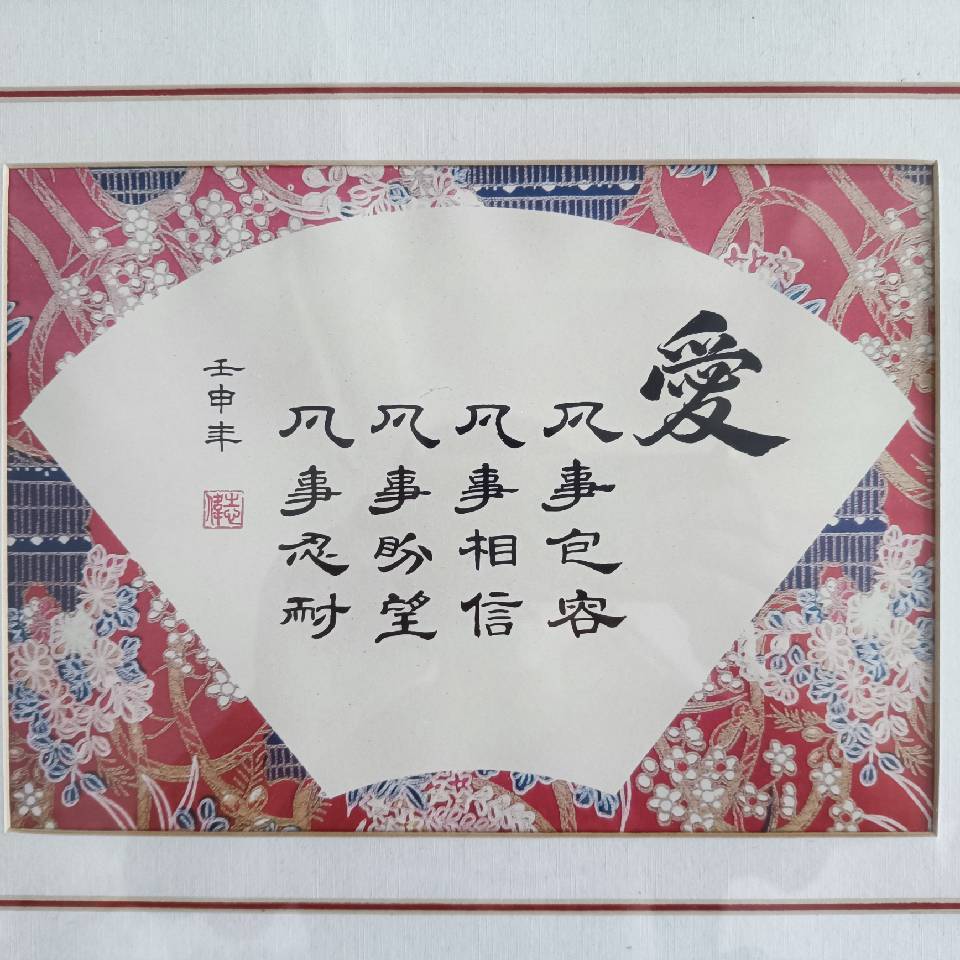 愛
凡事包容
凡事相信
凡事盼望
凡事忍耐
壬申年
志偉